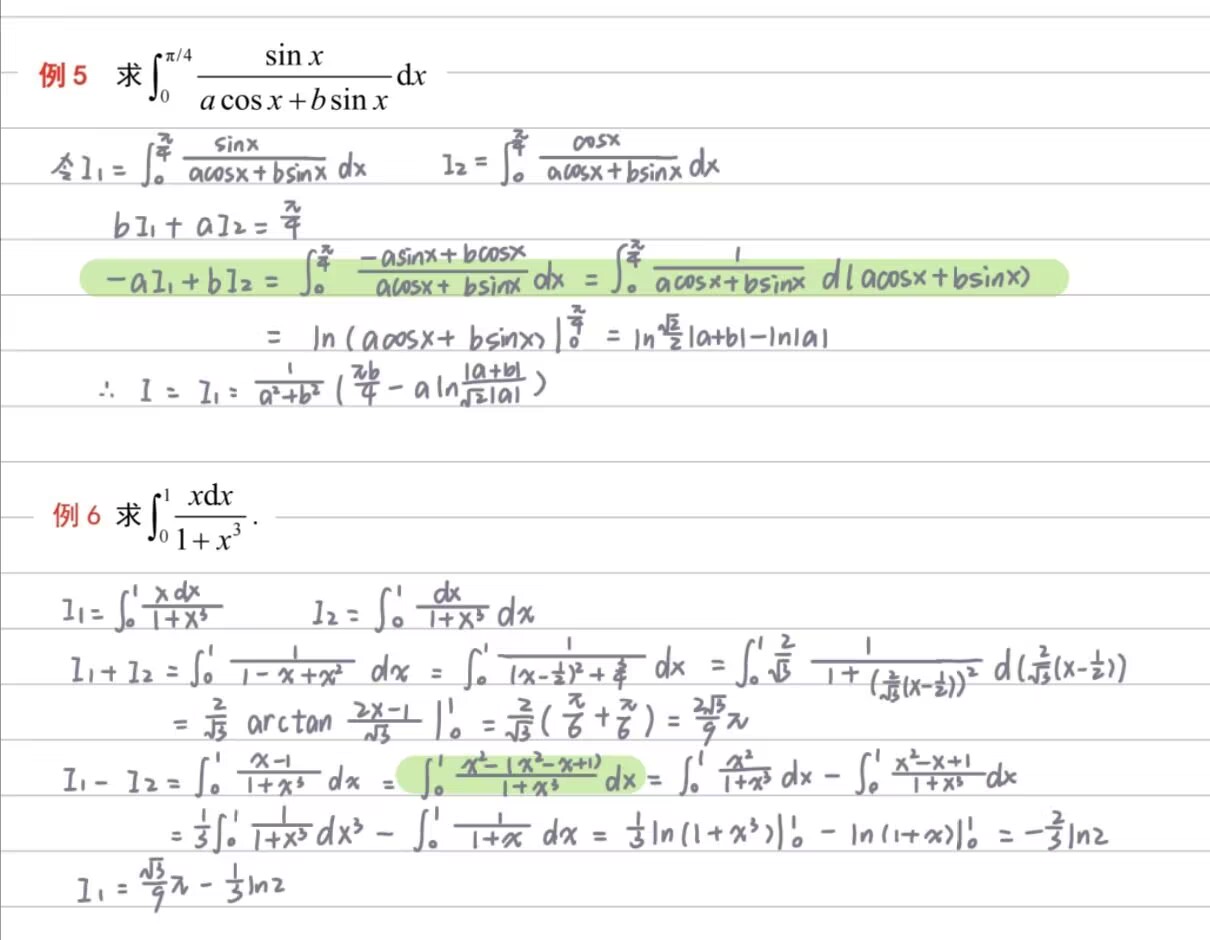 例 5 求 ∫₀^{π/4} \frac{\sin x}{a\cos x+b\sin x} dx
令 I₁ = ∫₀^{π/4} \frac{sinx}{acosx+bsinx} dx I₂ = ∫₀^{π/4} \frac{cosx}{acosx+bsinx} dx
bI₁ + aI₂ = \frac{π}{4}
-aI₁ + bI₂ = ∫₀^{π/4} \frac{-asinx+bcosx}{acosx+bsinx} dx = ∫₀^{π/4} \frac{1}{acosx+bsinx} d(acosx+bsinx)
= ln(acosx+bsinx)|₀^{π/4} = ln\frac{√2}{2}|a+b|-ln|a|
∴ I = I₁ = \frac{1}{a²+b²}(\frac{πb}{4} - aln\frac{|a+b|}{√2|a|})
例 6 求 ∫₀^1 \frac{xdx}{1+x³}.
I₁ = ∫₀^1 \frac{xdx}{1+x³} I₂ = ∫₀^1 \frac{dx}{1+x³} dx
I₁ + I₂ = ∫₀^1 \frac{1}{1-x+x²} dx = ∫₀^1 \frac{1}{(x-\frac{1}{2})²+\frac{3}{4}} dx = ∫₀^1 \frac{2}{√3} \frac{1}{1+(\frac{2}{√3}(x-\frac{1}{2}))²} d(\frac{2}{√3}(x-\frac{1}{2}))
= \frac{2}{√3} arctan \frac{2x-1}{√3}|₀^1 = \frac{2}{√3}(\frac{π}{6}+\frac{π}{6}) = \frac{2√3}{9}π
I₁ - I₂ = ∫₀^1 \frac{x-1}{1+x³} dx = ∫₀^1 \frac{x²-(x²-x+1)}{1+x³} dx = ∫₀^1 \frac{x²}{1+x³} dx - ∫₀^1 \frac{x²-x+1}{1+x³} dx
= \frac{1}{3}∫₀^1 \frac{1}{1+x³} dx³ - ∫₀^1 \frac{1}{1+x} dx = \frac{1}{3}ln(1+x³)|₀^1 - ln(1+x)|₀^1 = -\frac{2}{3}ln2
I₁ = \frac{√3}{9}π - \frac{1}{3}ln2